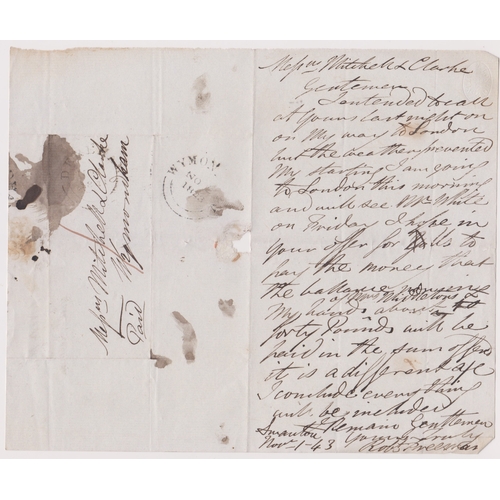 Messrs Mitchell & Clarke
Gentlemen
I intended to call
at yours last night on
on My way to London
but the weather prevented
My starting I am going
to London this morning
and will see Mr White
on Friday I hope in
your offer for to
pay the money that
the ballance
My hands above
forty Pounds will be
paid in the sum offerd
it is a different
I conclude every thing
will be included
I Remain Gentlemen
Swanton Yours truly
Novr 1-43 Robt Freeman
Messrs Mitchell & Clarke
Wymondham
Paid
WYMON
NO